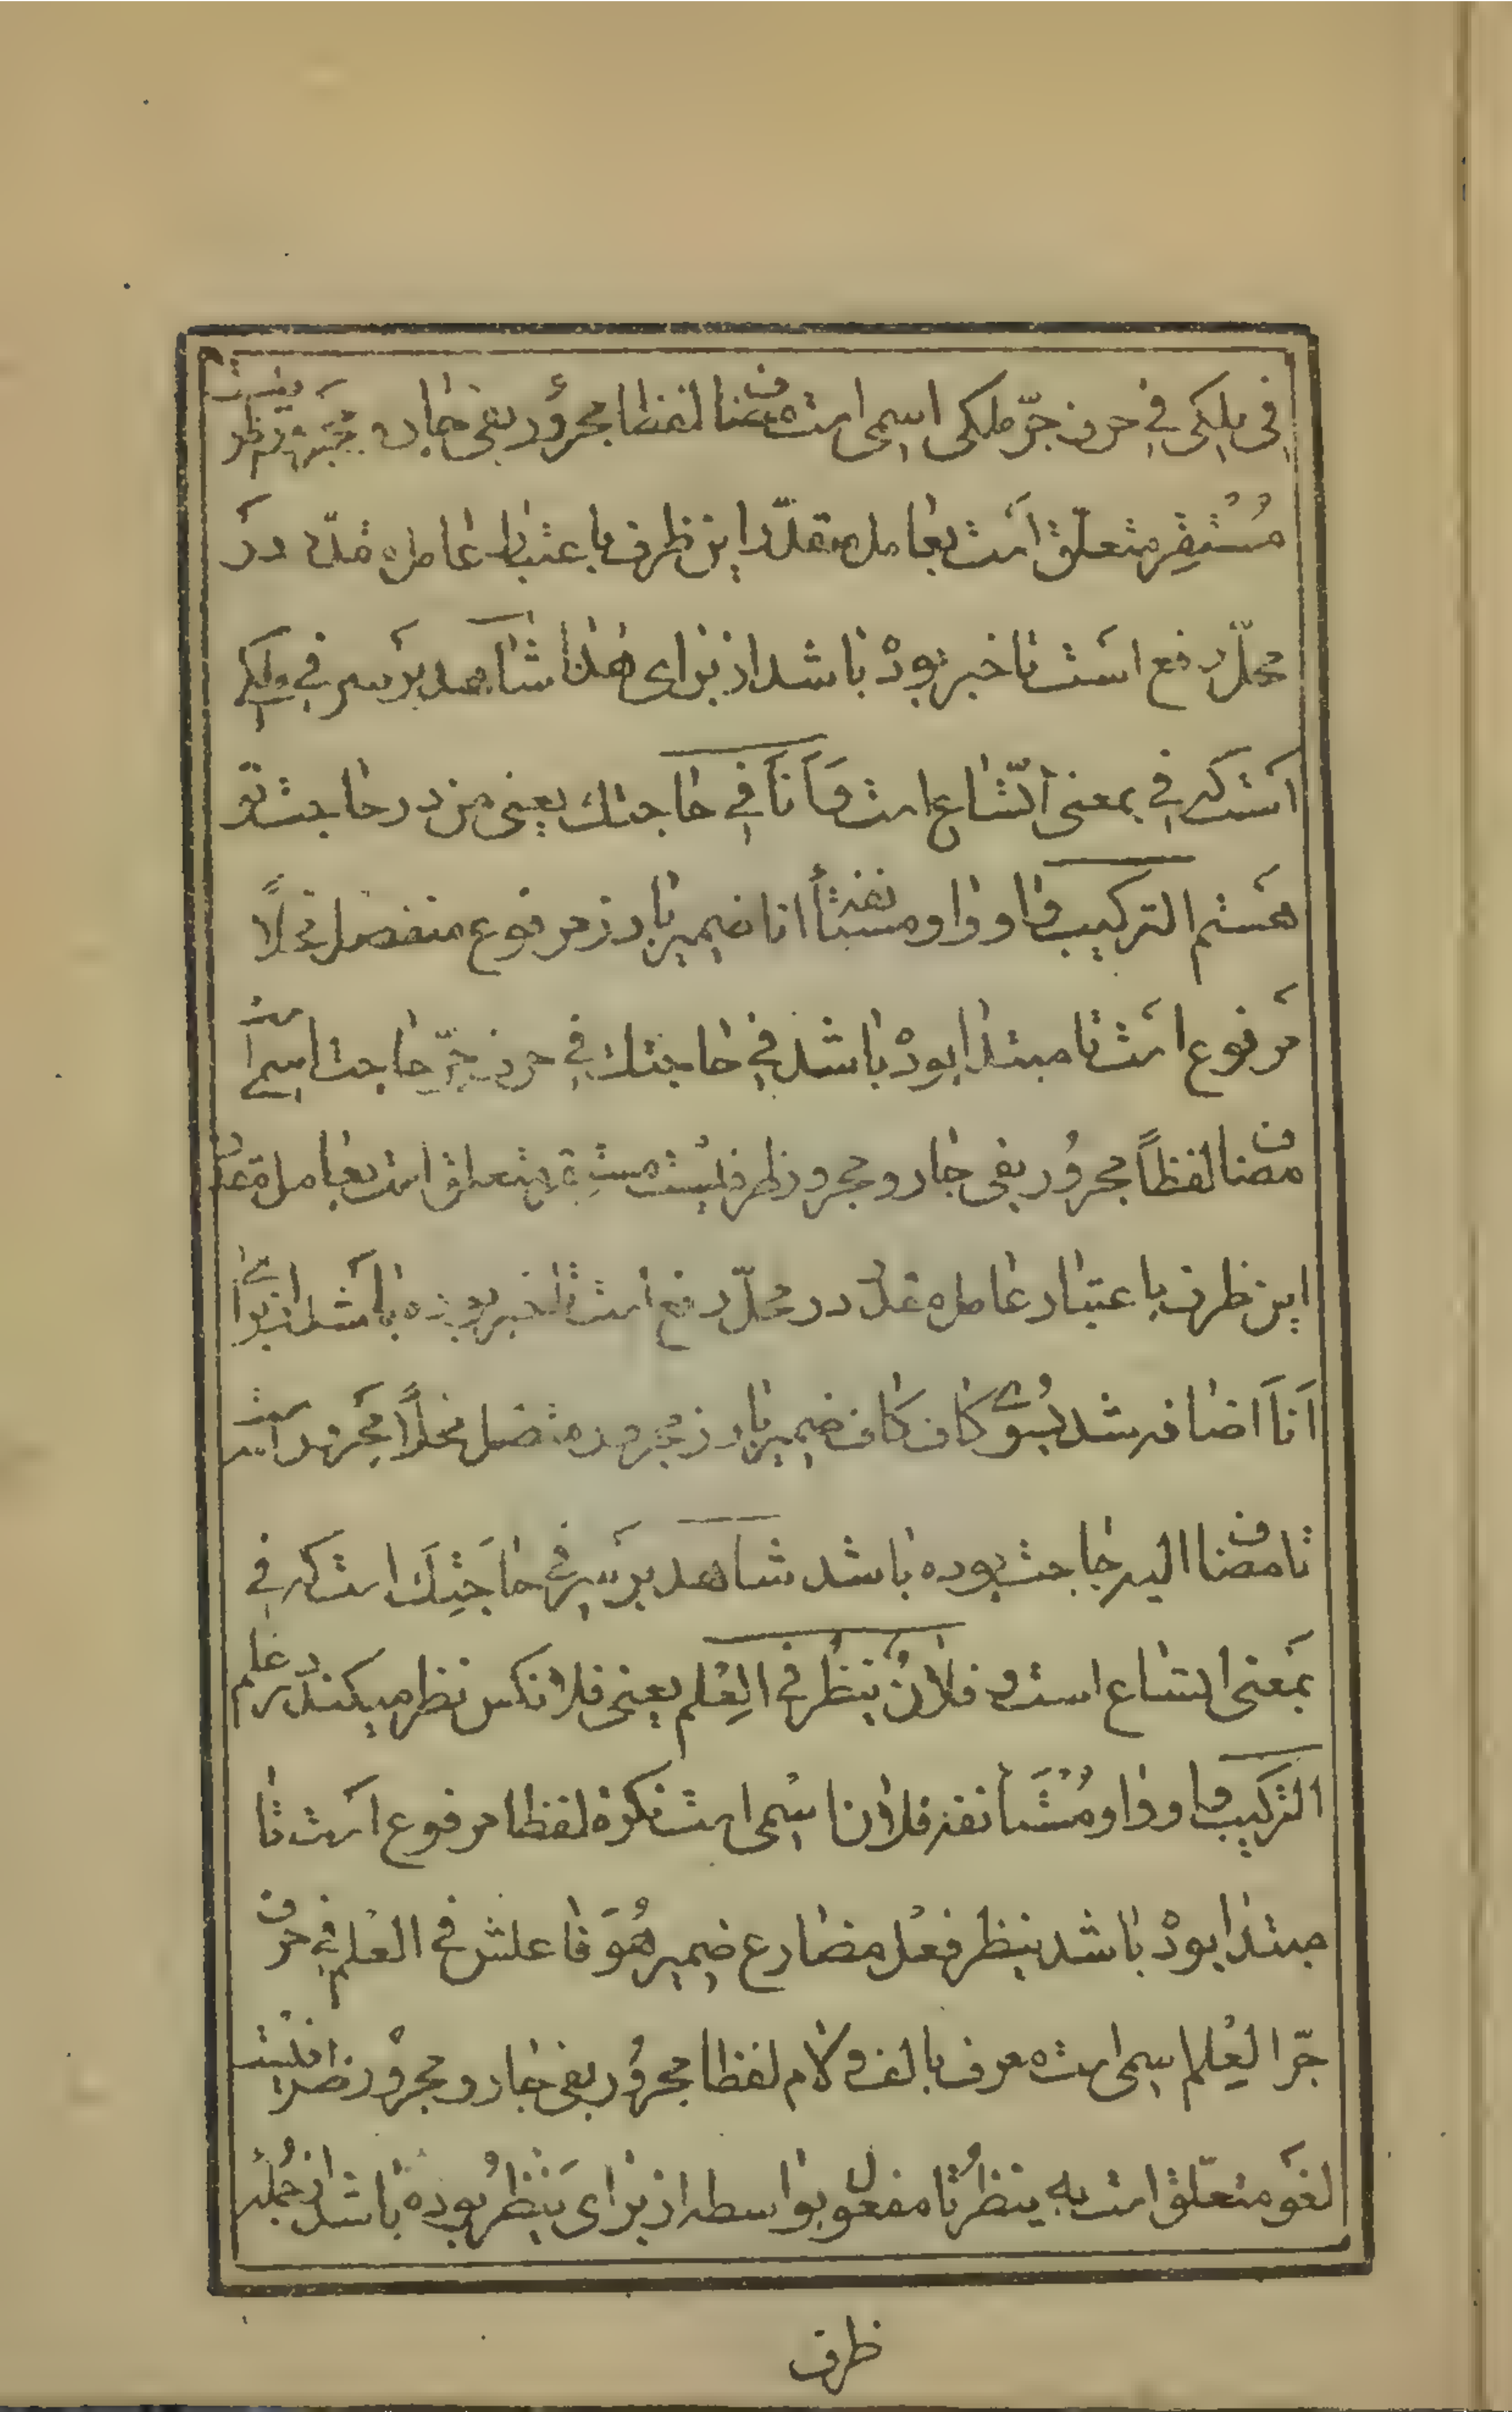 فِی مِلِکی فِی حرف جرّ ملکی اسمی است مضاف لفظا مجرؤر بفی جار و مجرور ظرفیست
مُسْتَقِر متعلّق اَست بعٰامل مقدّر این ظرف باعتبٰار عٰامل مقدّر در
محلّ رفع اسَت تا خبر بودْ بٰاشد از برٰای هٰذٰا شٰاهد بر سر فی مِلِکی
اَست که فِی بمعنی اتّسٰاع است وَ اَنَا فِی حٰاجتك یعنی من در حٰاجت تو
هَستم الترکیب وٰاو وٰاو مستأنفه انا ضمیر بٰارز مرفوع منفصل محلاً
مَرفوع اَست تا مبتدٰا بودْ بٰاشد فِی حٰاجتك فِی حرف جرّ حٰاجت اسمی است
مضاف لفظاً مجرُور بفی جٰار و مجرور ظرفیست مستقر متعلق است بعٰامل مقدّر
این ظرف باعتبٰار عٰامل مقدّر در محلّ رفع است تا خبر بوده بٰاشد از برٰای
اَنَا اضٰافه شد بسُوی کٰاف کٰاف ضمیر بٰارز مجرور متصل محلاً مجَرور اَست
تا مضاف الیه حٰاجت بوده بٰاشد شاهد بر سر فِی حٰاجَتِكَ است که فِی
بمَعنی اتساع است و فلاٰنٌ ینظُر فِی العِلْم یعنی فلانکس نظر میکند در علم
الترکیب وٰاو وٰاو مُسْتَأنفه فلاٰن اسْمی است نکرة لفظا مرفوع اَست تٰا
مبتدٰا بودْ بٰاشد ینظر فعْل مضٰارع ضمیر هُوَ فٰاعلش فی العلْم فِی حرف
جرّ العِلْم اسمی است معرف بالف و لاٰم لفظا مجرُور بفی جٰار و مجرور ظرفیست
لغَو متعلّق است به ینظُر تا مفعول بوٰاسطه از برٰای یَنْظُر بوده بٰاشد از جُمله
ظرف